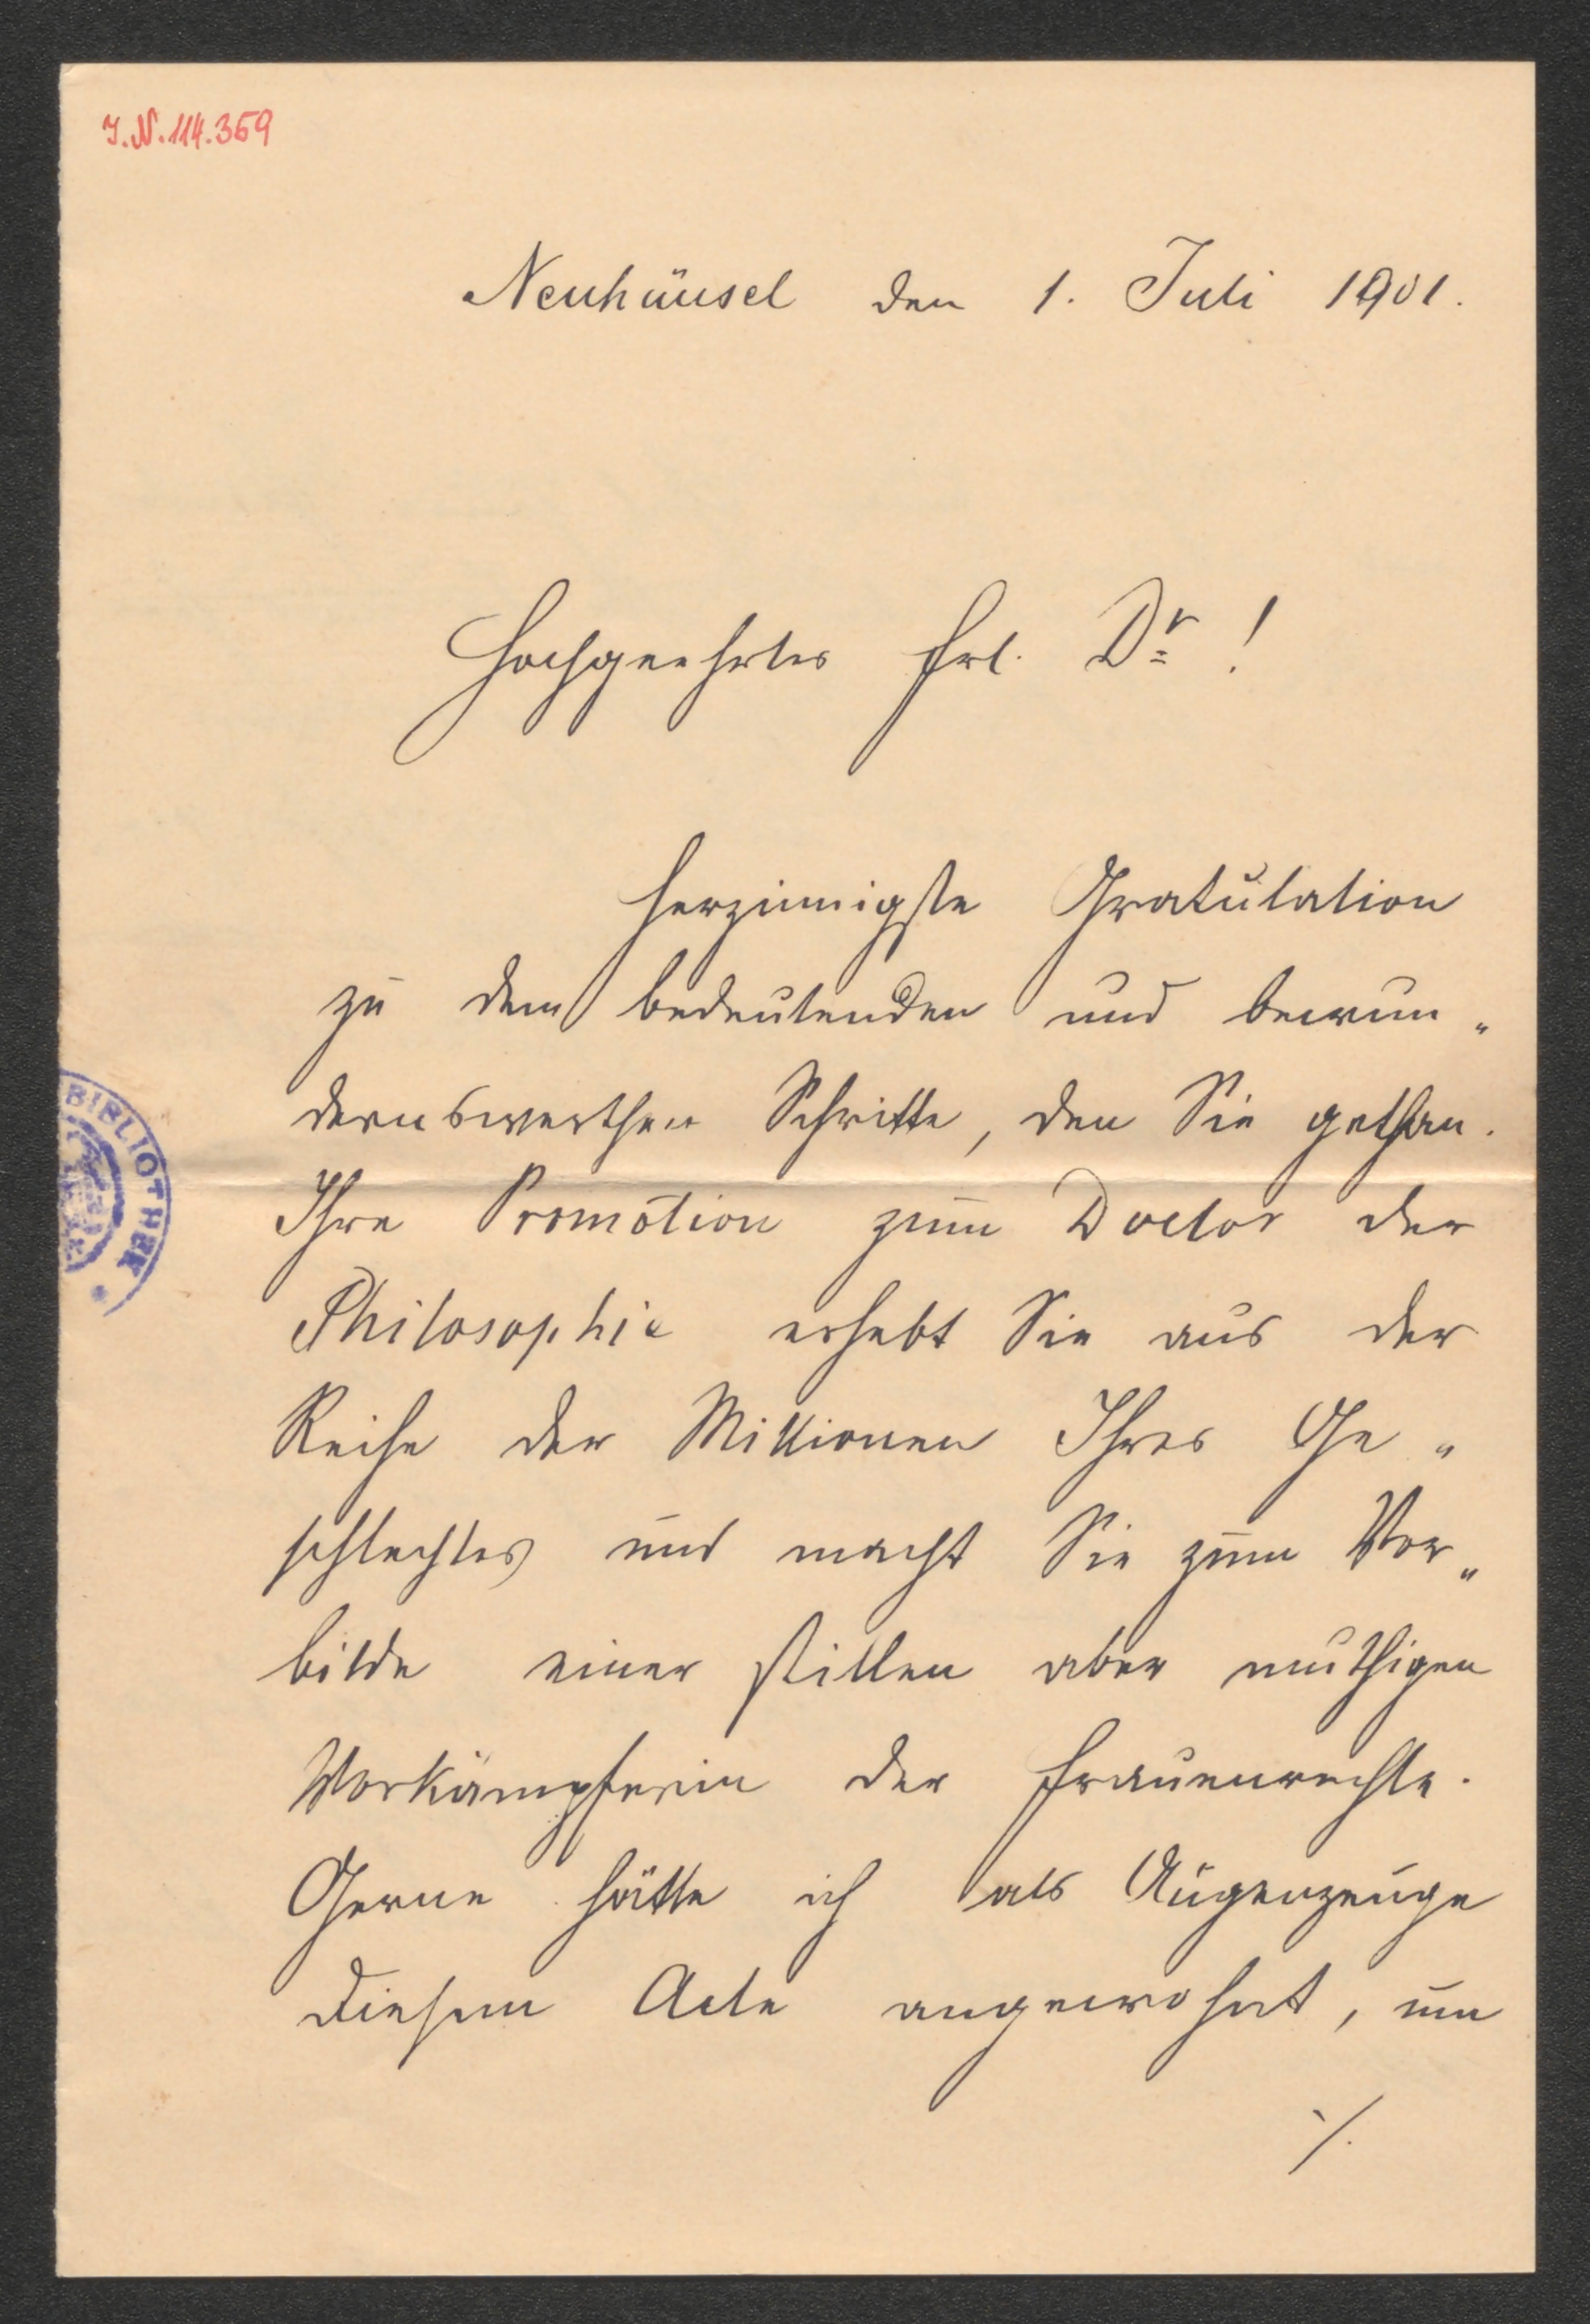 J.N. 114.359
Neuhäusel den 1. Juli 1901.
Hochgeehrtes Frl. Dr!
Herzinnigste Gratulation
zu dem bedeutenden und bewun„
dernswerthen Schritte, den Sie gethan.
Ihre Promotion zum Doctor der
Philosophie erhebt Sie aus der
Reihe der Millionen Ihres Ge„
schlechtes und macht Sie zum Vor„
bilde einer stillen aber muthigen
Vorkämpferin der Frauenrechte.
Gerne hätte ich als Augenzeuge
diesem Acte angewohnt, um
./.
BIBLIOTHEK